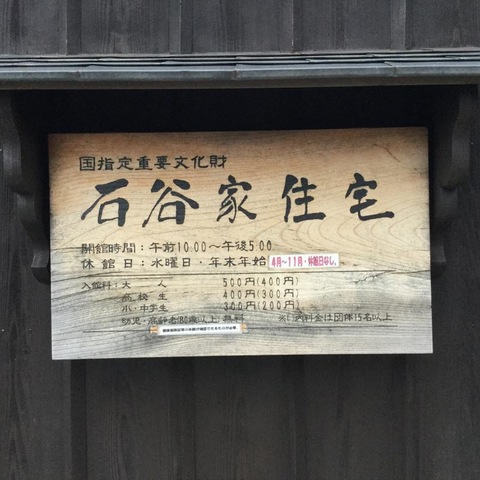 国指定重要文化財
石谷家住宅
開館時間：午前10:00～午後5:00
休館日：水曜日・年末年始 4月～11月・休館日なし。
入館料：大人 500円(400円)
高校生 400円(300円)
小・中学生 300円(200円)
幼児・高齢者(80歳以上)無料 ※( )内料金は団体15名以上